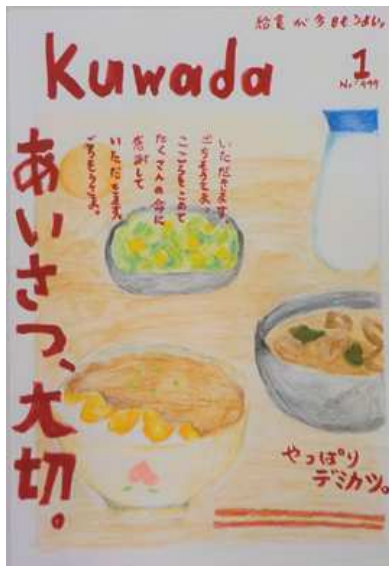 給食が今日もうまい。
Kuwada
1
No.499
あいさつ、大切。
いただきます。
ごちそうさま。
こころをこめて
たくさんの命に
感謝して
いただきます。
ごちそうさま。
やっぱり
デミカツ。